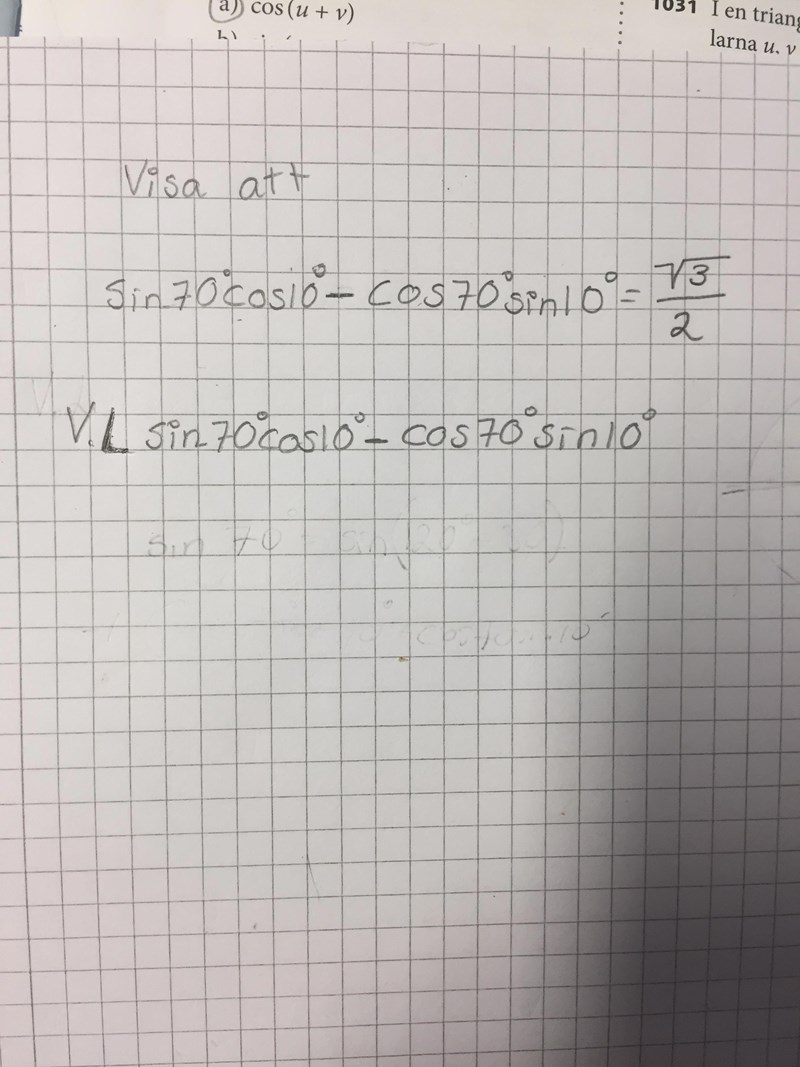 a) cos (u + v)
1031 I en
larna u, v
Visa att
sin70°cos10° – cos70°sin10° = √3/2
V.L sin70°cos10° – cos70°sin10°
sin 70